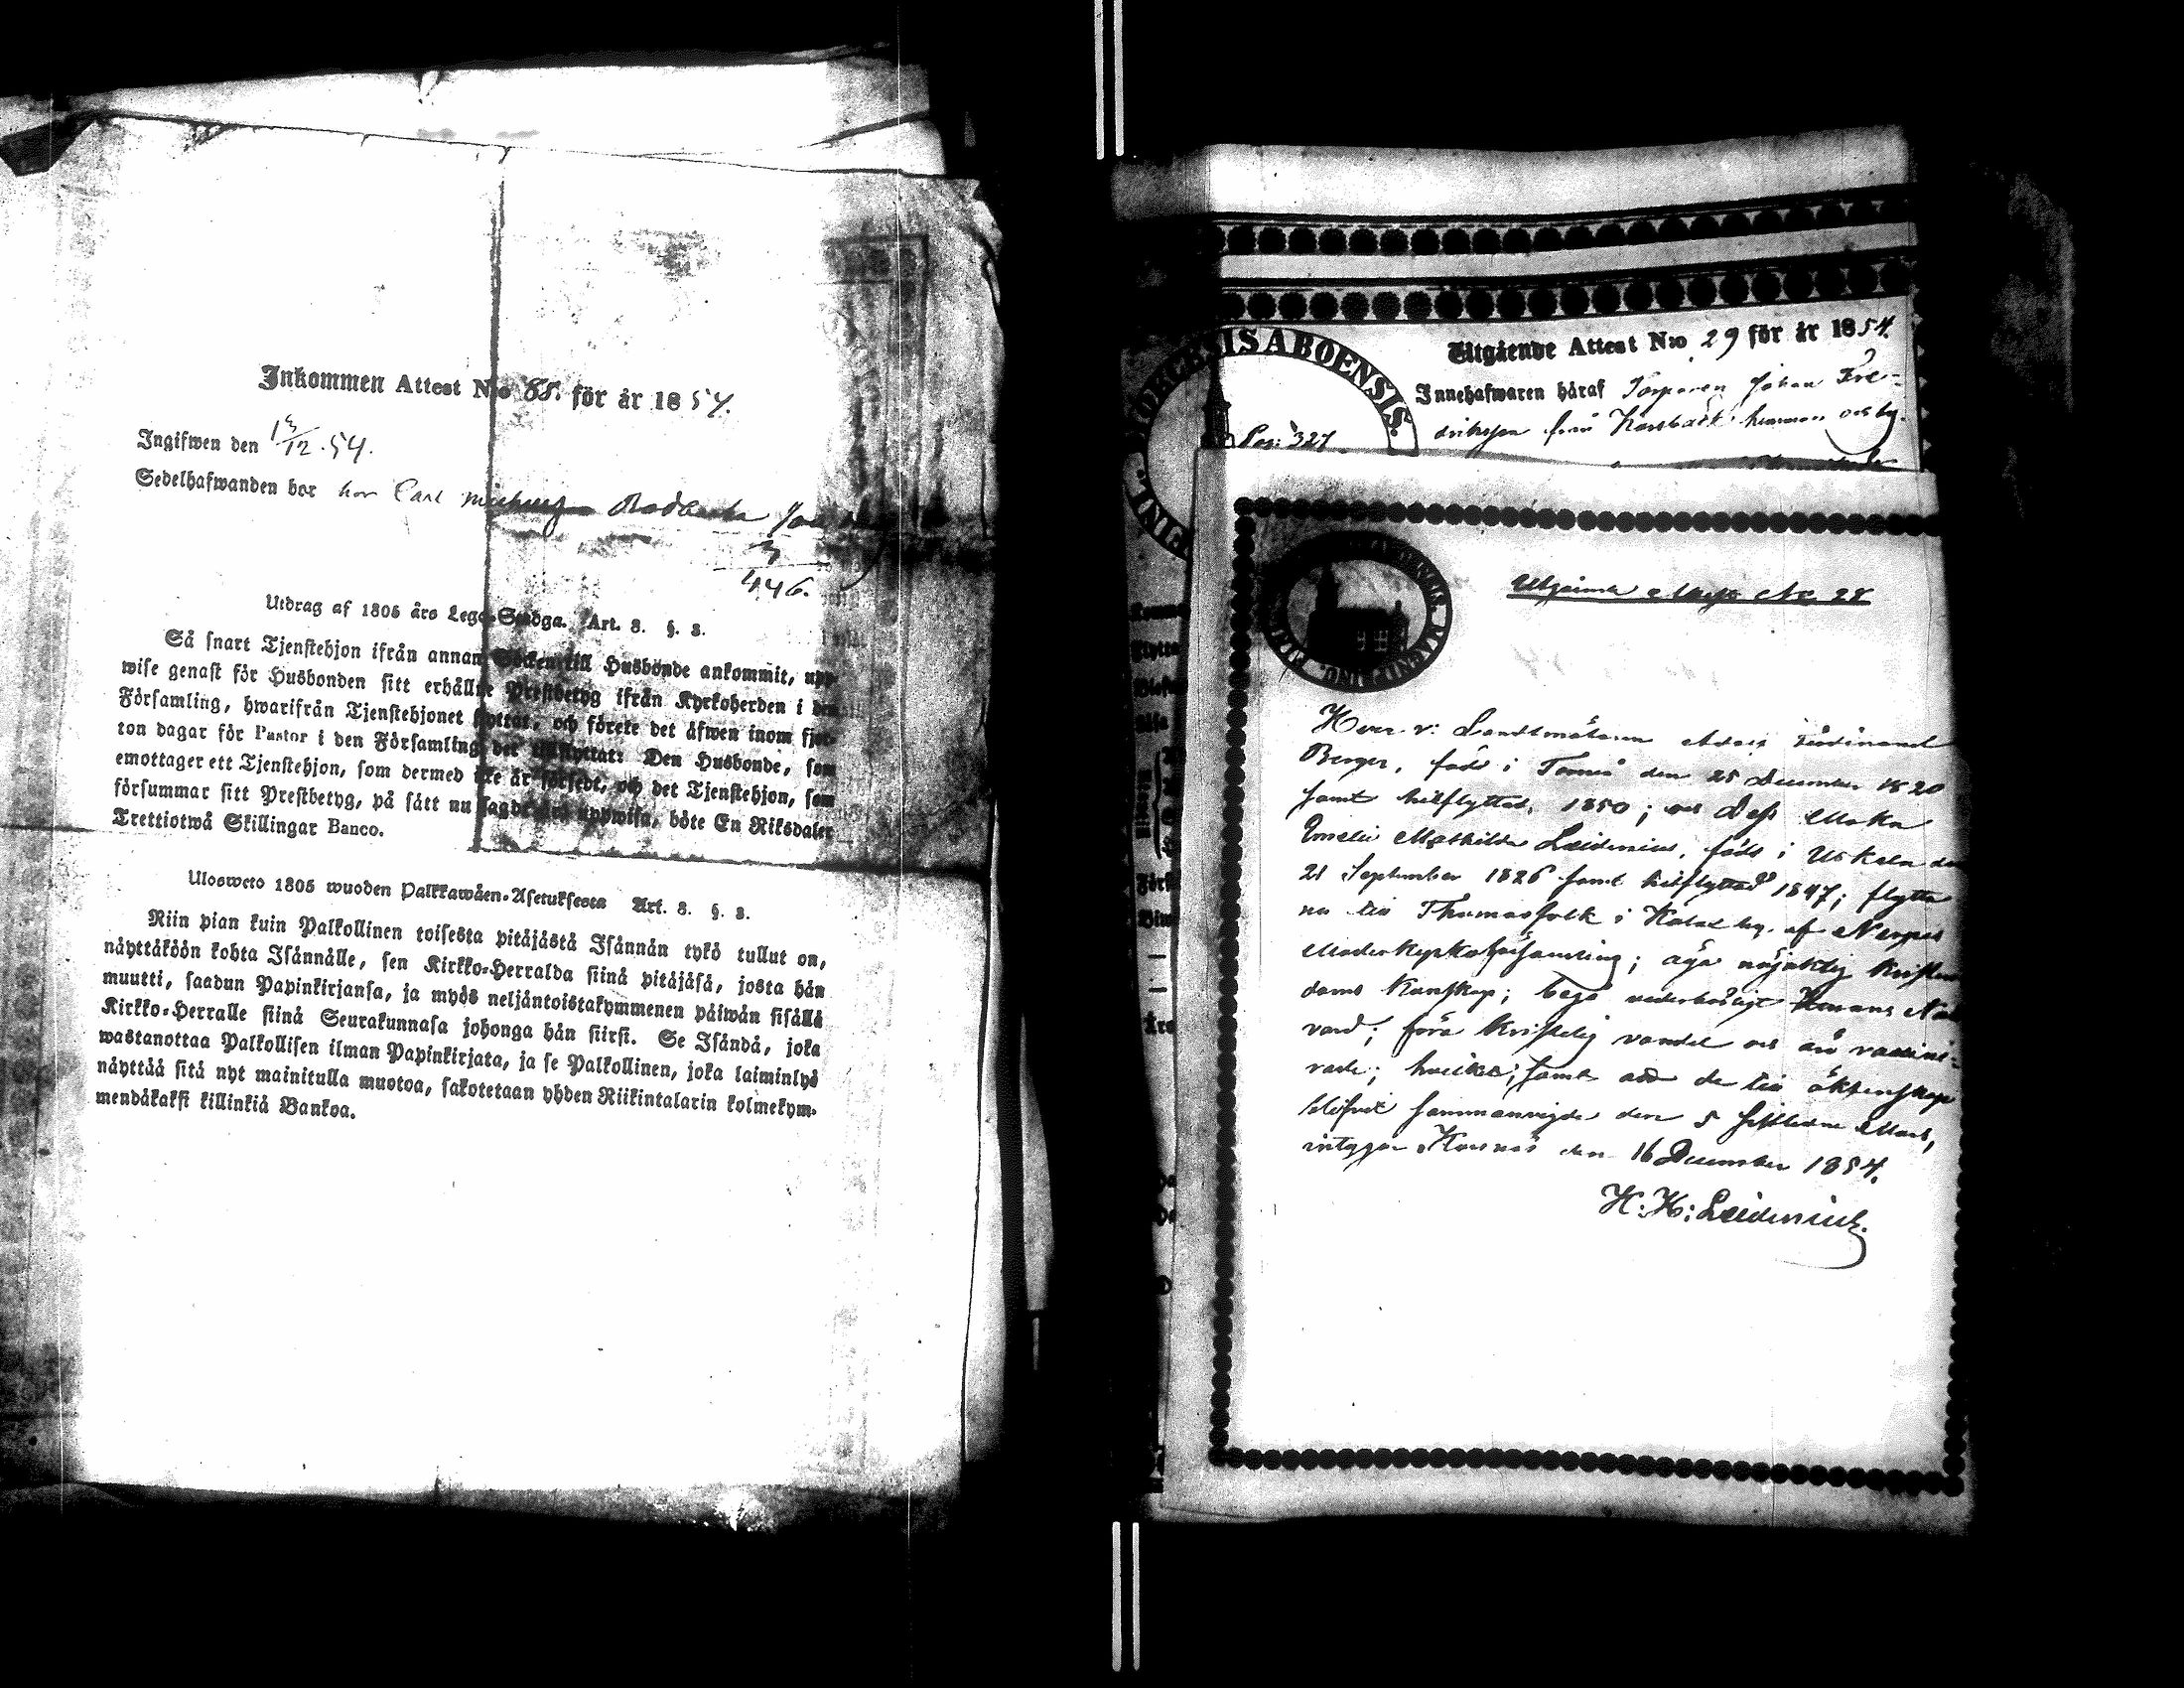 Inkommen Attest N:o 88. för år 1854.
Ingifwen den 13/12.54.
Sedelhafwanden bor hos Carl
3
446.
Utdrag af 1805 års Lego-Stadga. Art. 8. §. 3.
Så snart Tjenstehjon ifrån annan Socken till Husbonde ankommit, upp-
wise genast för Husbonden sitt erhållne Prestbetyg ifrån Kyrkoherden i den
Församling, hwarifrån Tjenstehjonet flyttat, och förete det äfwen inom fjor-
ton dagar för Pastor i den Församling, det tillflyttat: Den Husbonde, som
emottager ett Tjenstehjon, som dermed icke är försedt, och det Tjenstehjon, som
försummar sitt Prestbetyg, på sätt nu sagdt är, uppwisa, böte En Riksdaler
Trettiotwå Skillingar Banco.
Ulosweto 1805 wuoden Palkkawäen-Asetuksesta Art. 8. §. 3.
Niin pian kuin Palkollinen toisesta pitäjästä Isännän tykö tullut on,
näyttäköön kohta Isännälle, sen Kirkko-Herralda siinä pitäjäsä, josta hän
muutti, saadun Papinkirjansa, ja myös neljäntoistakymmenen päiwän sisällä
Kirkko-Herralle siinä Seurakunnasa johonga hän siirsi. Se Isändä, joka
wastanottaa Palkollisen ilman Papinkirjata, ja se Palkollinen, joka laiminlyö
näyttää sitä nyt mainitulla muotoa, sakotetaan yhden Riikintalarin kolmekym-
mendäkaksi killinkiä Bankoa.
ABOENSIS.
Pag: 327
Utgående Attest N:o 29 för år 1854.
Innehafwaren häraf Torparen Johan Fre-
driksson från Korsbäck hemman och by.
Utgående Attest No 28
Herr v: Landtmätaren Adolf Ferdinand
Berger, född i Torneå den 25 December 1820
samt hitflyttad, 1850; och Dess Maka
Emelie Mathilda Leidenius, född i Uskela den
21 September 1826 samt hitflyttad 1847; flytta
nu till Thomasfolk i Kalax by. af Nerpes
Moderkyrkoförsamling; äga nöjaktig kristen-
doms kunskap; begå vederbörligt Herrans Natt
vard; föra kristelig vandel och äro vaccine-
rade; hvilket; samt att de till äktenskap
blifvit sammanvigde den 5 sistledne Mars,
intygar Korsnäs den 16 December 1854.
H: H: Leidenius.